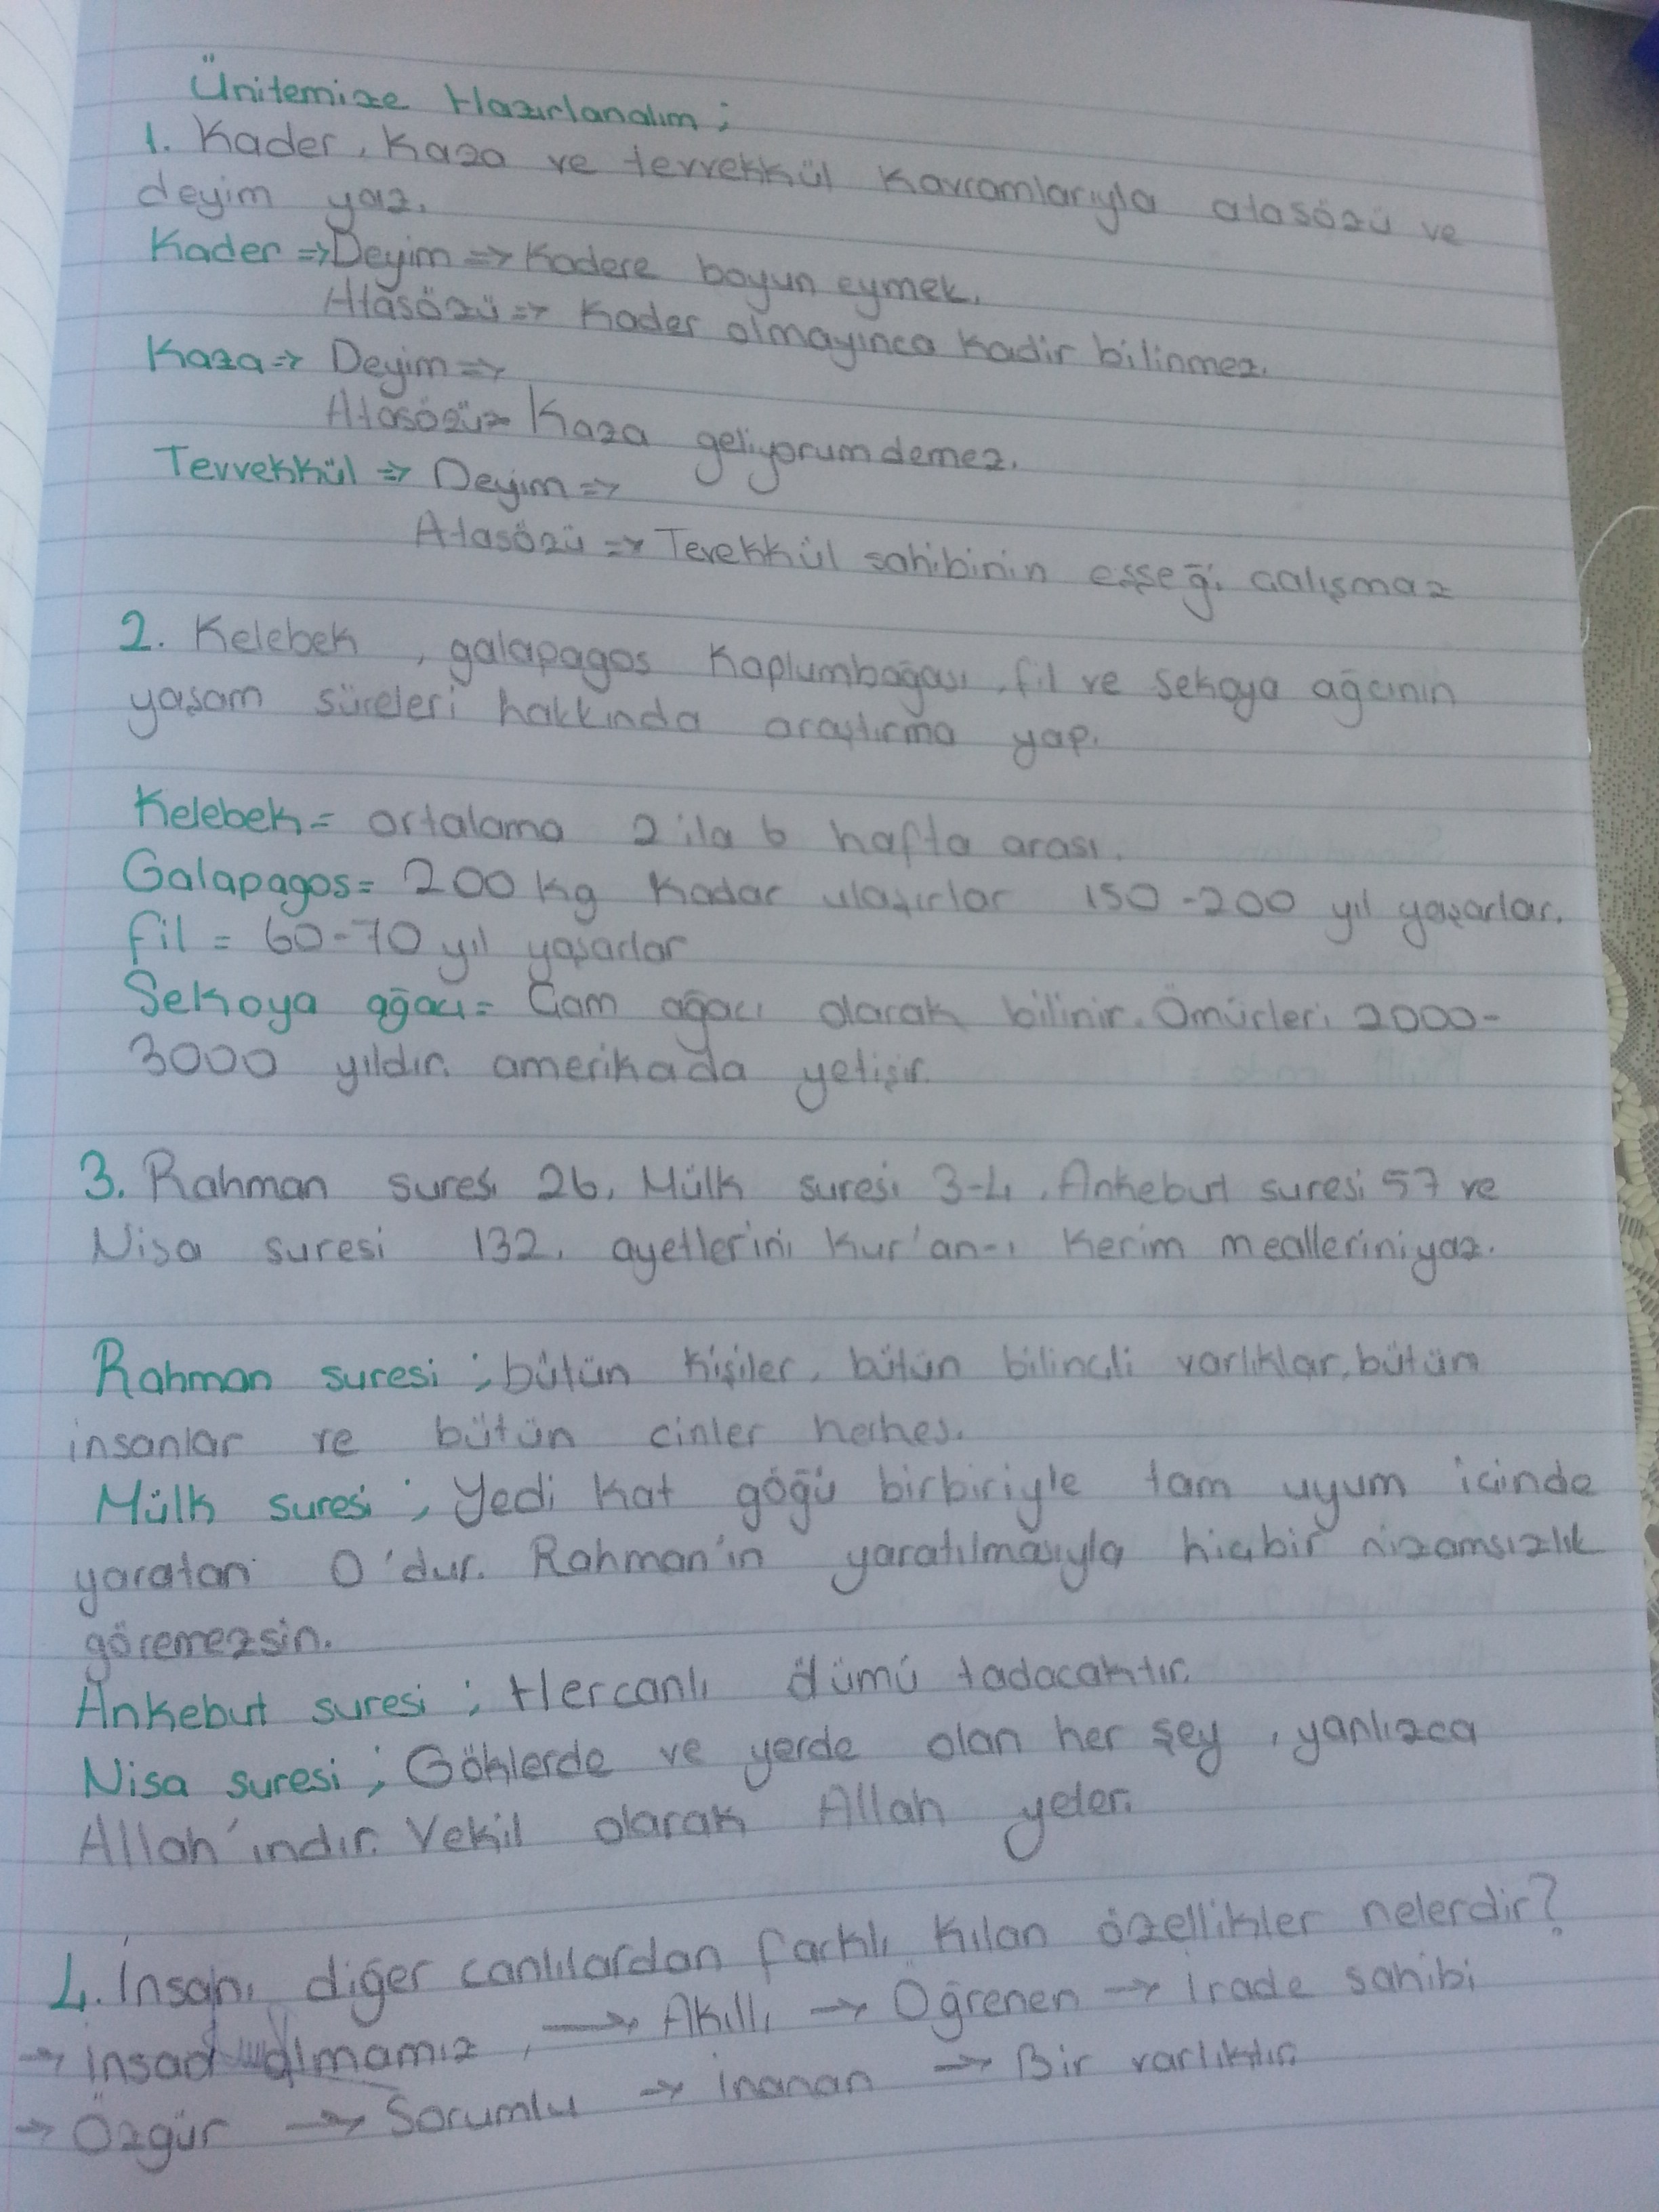 Ünitemize Hazırlanalım;
1. Kader, Kaza ve tevvekkül kavramlarıyla atasözü ve
deyim yaz.
Kader => Deyim => Kadere boyun eymek.
Atasözü => Kader olmayınca kadir bilinmez.
Kaza => Deyim =>
Atasözü => Kaza geliyorum demez.
Tevvekkül => Deyim =>
Atasözü => Tevekkül sahibinin eşşeği çalışmaz
2. Kelebek, galapagos kaplumbağası, fil ve sekoya ağcının
yaşam süreleri hakkında araştırma yap.
Kelebek = ortalama 2 ila 6 hafta arası.
Galapagos = 200 kg kadar ulaşırlar 150-200 yıl yaşarlar.
fil = 60-70 yıl yaşarlar
Sekoya ağacı = Çam ağacı olarak bilinir. Ömürleri 2000-
3000 yıldır. amerikada yetişir.
3. Rahman suresi 26, Mülk suresi 3-4, Ankebut suresi 57 ve
Nisa suresi 132. ayetlerini Kur'an-ı Kerim meallerini yaz.
Rahman suresi; bütün kişiler, bütün bilinçli varlıklar, bütüm
insanlar ve bütün cinler herkes.
Mülk suresi; Yedi kat göğü birbiriyle tam uyum içinde
yaratan O'dur. Rahman'ın yaratılmasıyla hiçbir nizamsızlık
göremezsin.
Ankebut suresi; Hercanlı ölümü tadacaktır.
Nisa suresi; Göklerde ve yerde olan her şey, yanlızca
Allah'ındır. Vekil olarak Allah yeter.
4. İnsanı diğer canlılardan farklı kılan özellikler nelerdir?
→ insan olmamız, → Akıllı → Öğrenen → irade sahibi
→ Özgür → Sorumlu → inanan → Bir varlıktır.